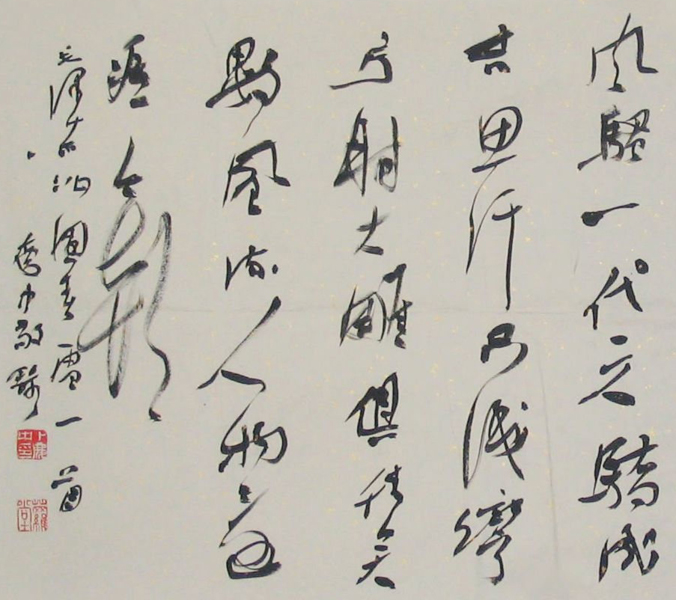 风騷一代天驕成
吉思汗只識彎
弓射大雕俱往矣
數風流人物還
看今朝
毛澤東沁園春雪一首
中敬